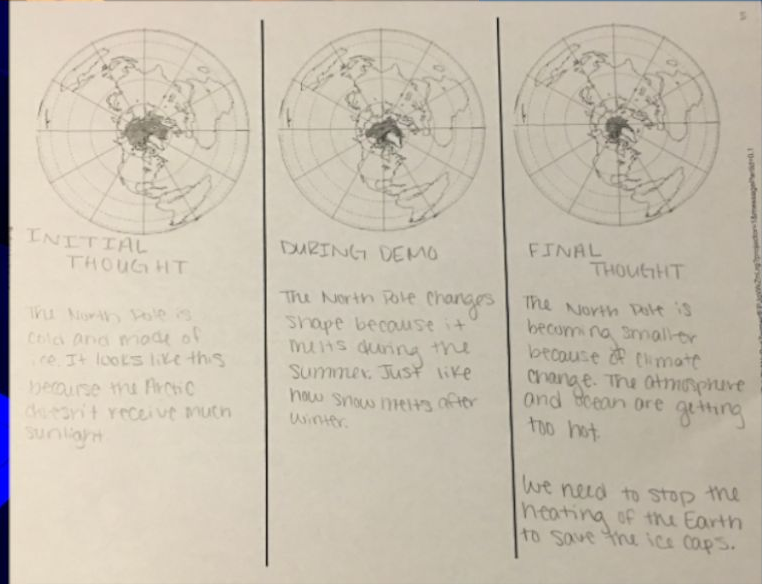 INITIAL
THOUGHT
The North Pole is
cold and made of
ice. It looks like this
because the Arctic
doesn't receive much
sunlight.
DURING DEMO
The North Pole changes
shape because it
melts during the
summer. Just like
how snow melts after
winter.
FINAL
THOUGHT
The North Pole is
becoming smaller
because of climate
change. The atmosphere
and ocean are getting
too hot.
We need to stop the
heating of the Earth
to save the ice caps.